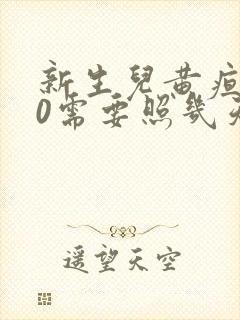 新生兒黃疸
0需要照幾天
遥望天空